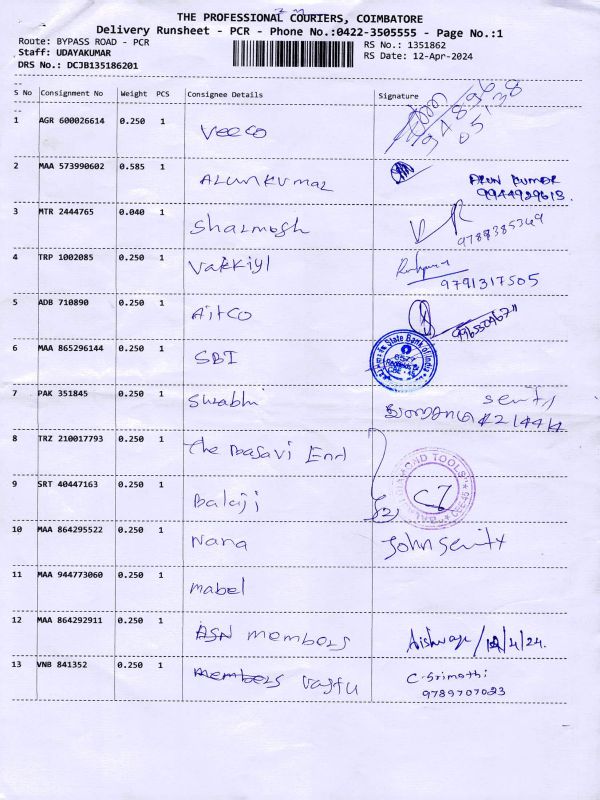 THE PROFESSIONAL COURIERS, COIMBATORE
Delivery Runsheet - PCR - Phone No.:0422-3505555 - Page No.:1
Route: BYPASS ROAD - PCR
RS No.: 1351862
Staff: UDAYAKUMAR
RS Date: 12-Apr-2024
DRS No.: DCJB135186201
S No Consignment No Weight PCS Consignee Details Signature
1 AGR 600026614 0.250 1 Veeco
2 MAA 573990602 0.585 1 Arunkumar ARUN KUMAR
9944929613.
3 MTR 2444765 0.040 1 Sharmosh
9788385349
4 TRP 1002085 0.250 1 Vakkiyl
9791317505
5 ADB 710890 0.250 1 AitCo
6 MAA 865296144 0.250 1 SBI State Bank of India
7 PAK 351845 0.250 1 Swabhi
8 TRZ 210017793 0.250 1 The End
9 SRT 40447163 0.250 1 Balaji DIAMOND TOOLS
10 MAA 864295522 0.250 1 Nana John
11 MAA 944773060 0.250 1 mabel
12 MAA 864292911 0.250 1 members /12/4/24.
13 VNB 841352 0.250 1 members C. Srimathi
9789707023